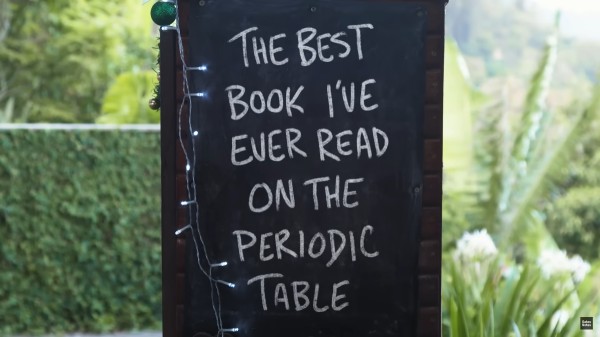 THE BEST
BOOK I'VE
EVER READ
ON THE
PERIODIC
TABLE